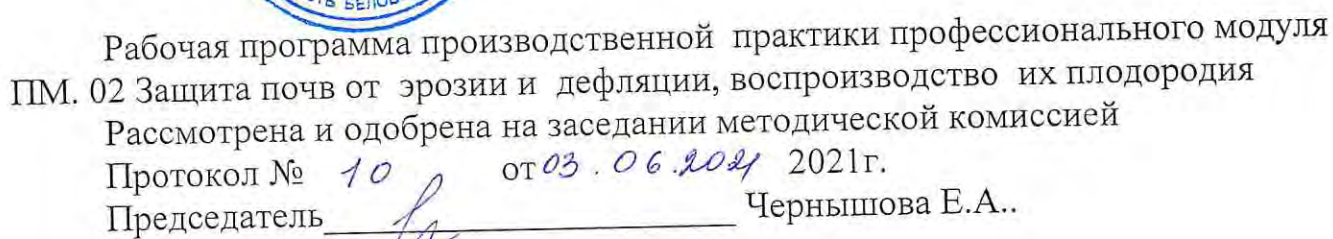 ТЬ БЕЛОВ
Рабочая программа производственной практики профессионального модуля
ПМ. 02 Защита почв от эрозии и дефляции, воспроизводство их плодородия
Рассмотрена и одобрена на заседании методической комиссией
Протокол № 10 от 03.06.2021 2021г.
Председатель________________ Чернышова Е.А..